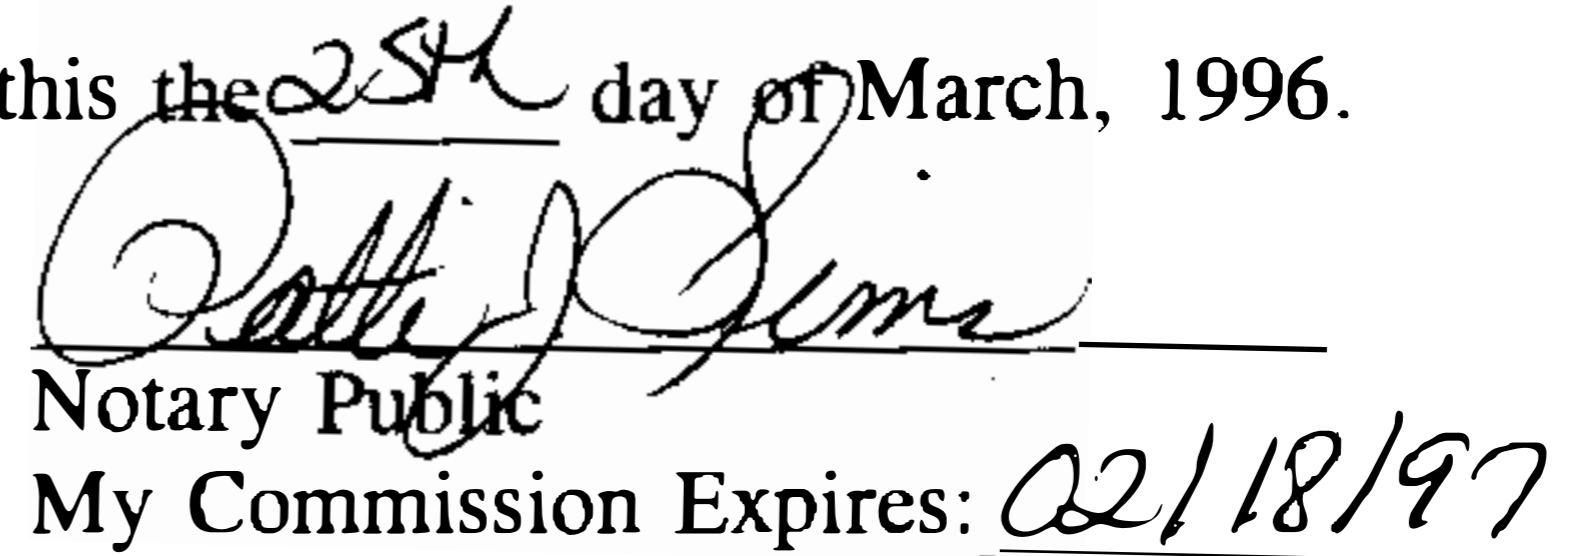 this the 25th day of March, 1996.
Patti J Sims
Notary Public
My Commission Expires: 02/18/97